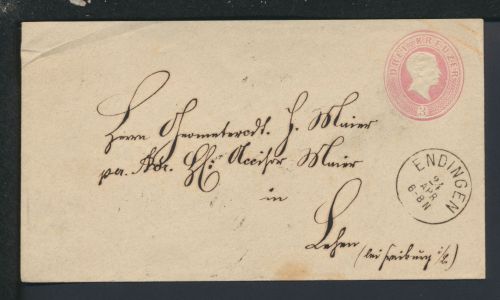 DREI KREUZER
3
Herrn Geometeradt. H. Maier
pr. Adr. H: Accisor Maier
in
Lehen
(bei Freiburg i/B.)
ENDINGEN
24
APR
6-8N